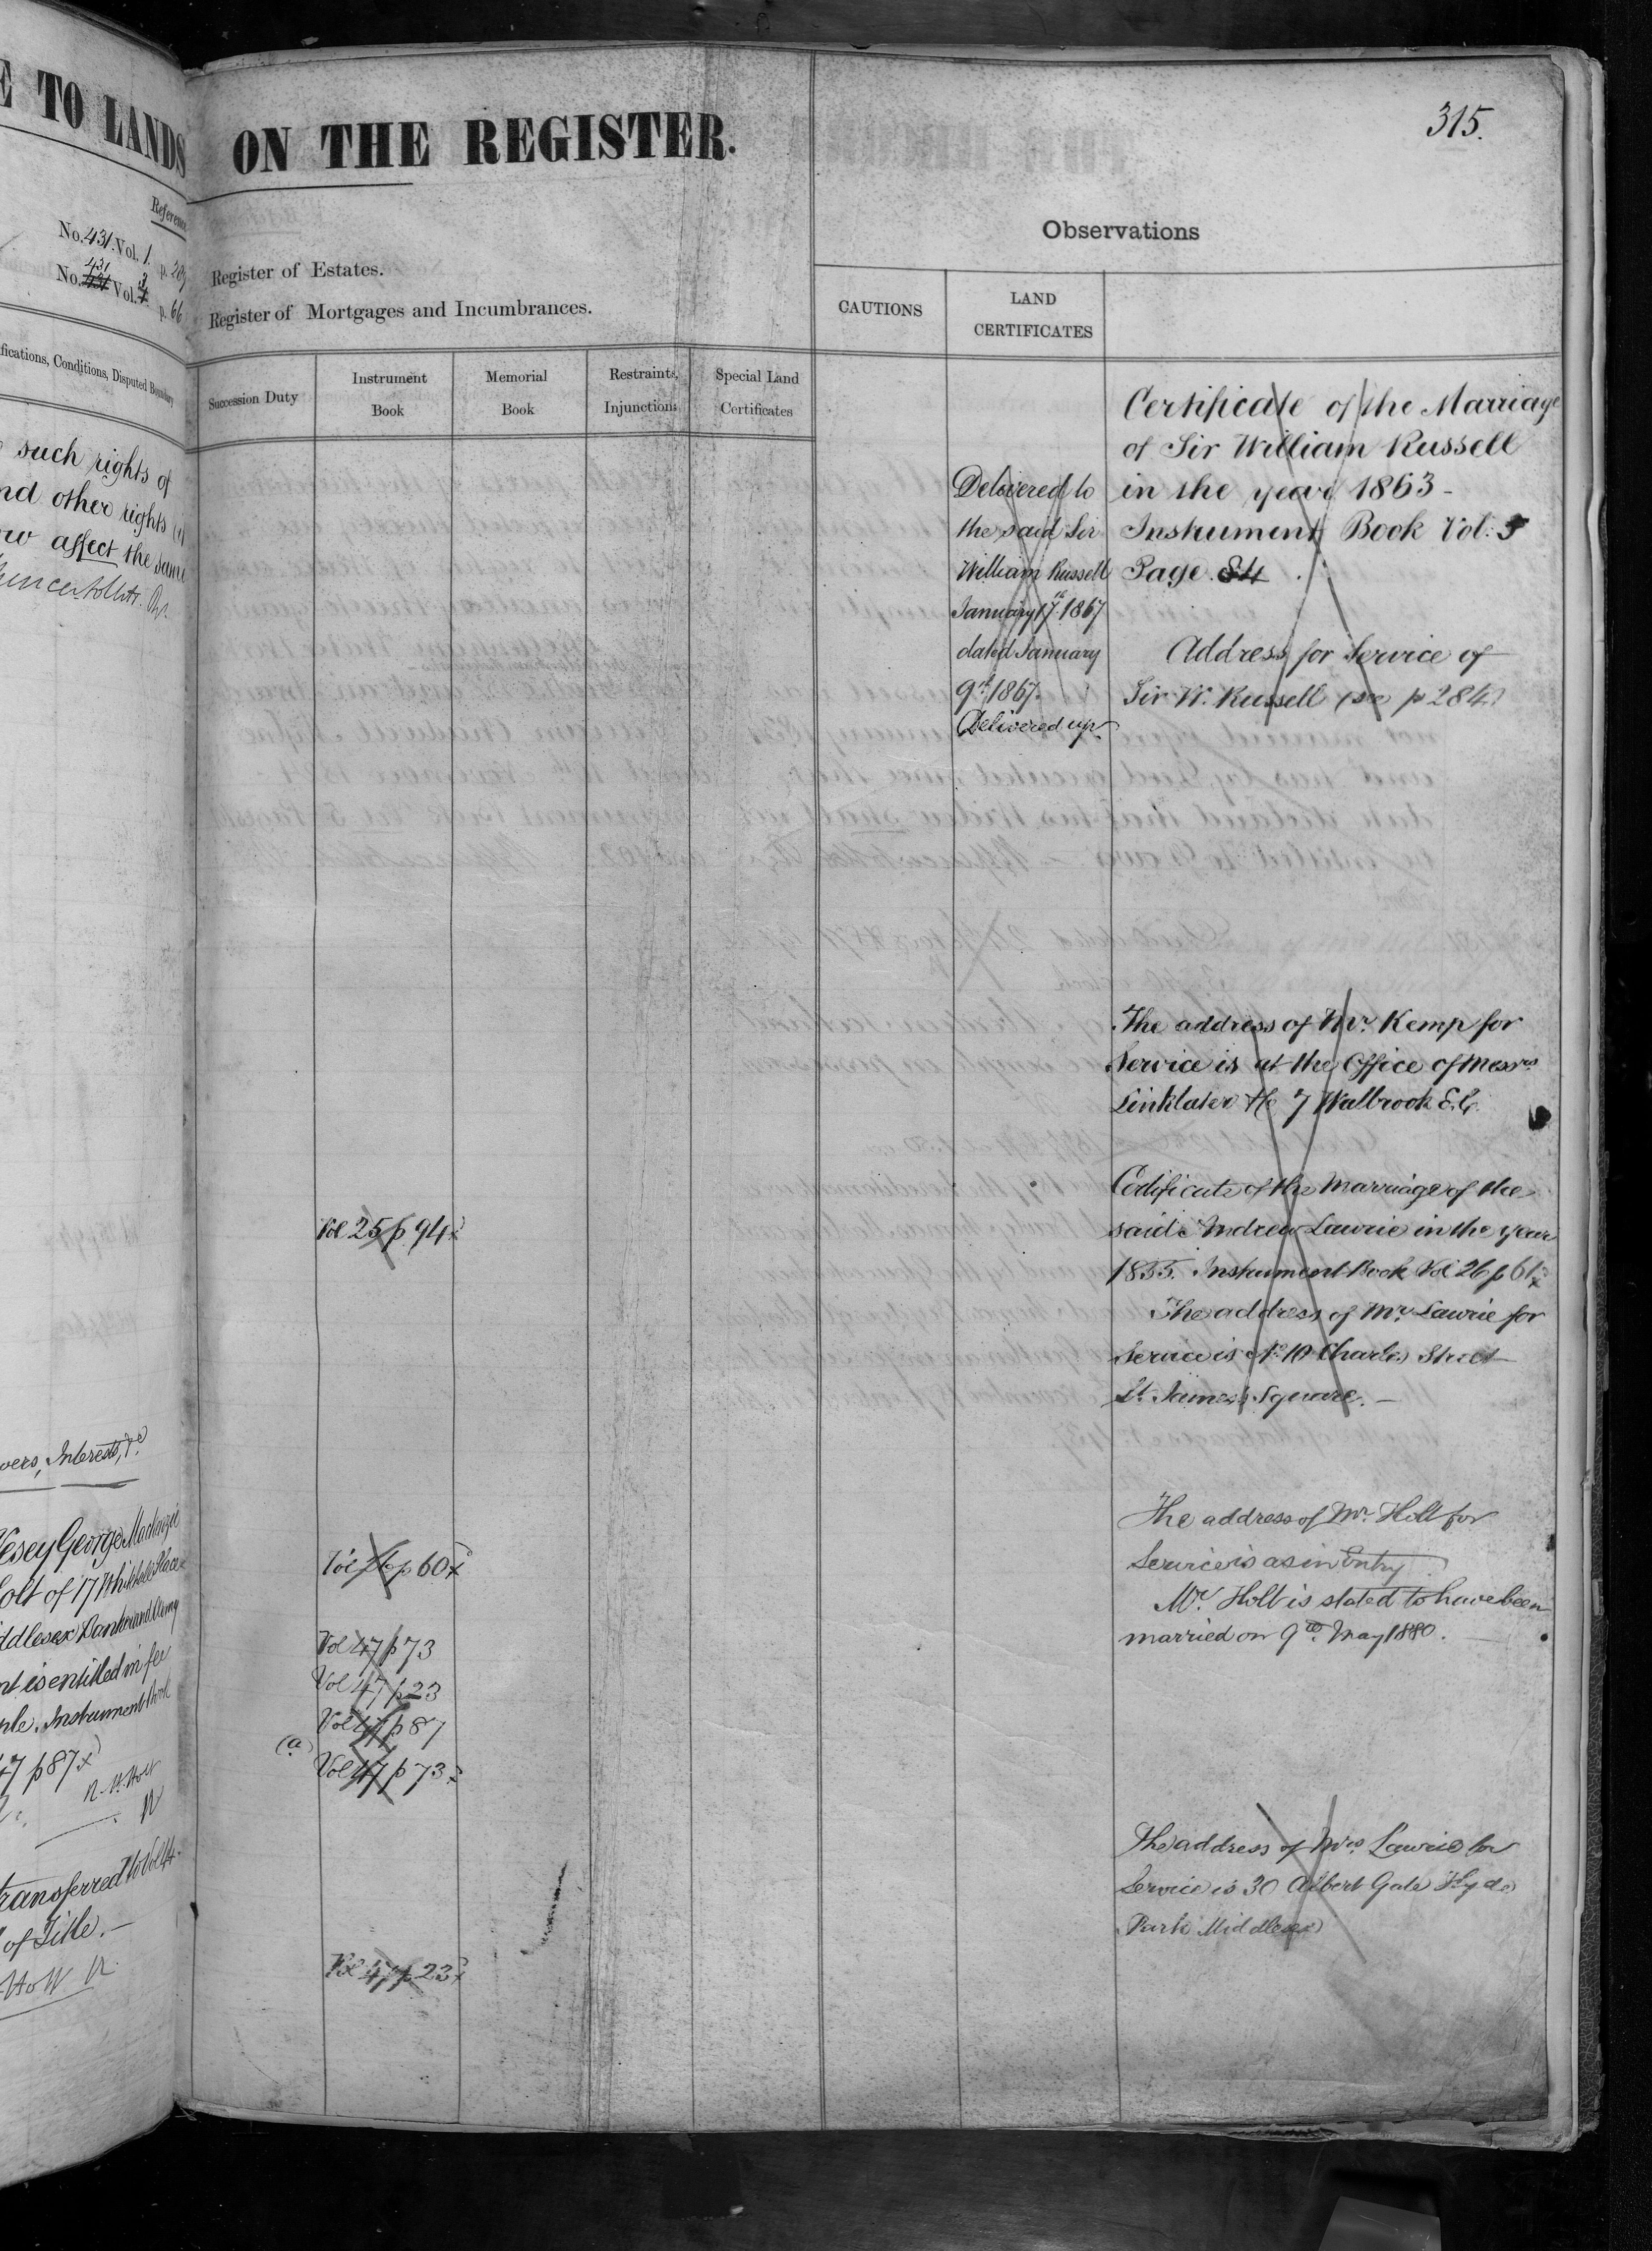 E TO LANDS
Reference
No. 431. Vol. 1. p. 203
431 3
No. 431 Vol. 4. p. 66
fications, Conditions, Disputed Boundary
such rights of
nd other rights
w affect the same
vers, Interests, &c
Vesey George Mackenzie
olt of 17 Whitehall Place
ddlesex Banker and Army
nt is entitled in fee
ple. Instrument Book
47 p 87x
R. H. Holt
R
transferred to Vol 4.
of Title. —
Holt R.
315.
ON THE REGISTER.
Register of Estates.
Register of Mortgages and Incumbrances.
Observations
CAUTIONS
LAND
CERTIFICATES
Succession Duty
Instrument
Book
Memorial
Book
Restraints,
Injunctions
Special Land
Certificates
Vol 25 p 94x
Vol 26 p 60x
Vol 47 p 73
Vol 47 p 23
Vol 47 p 87
(a)
Vol 47 p 73x
Vol 47 p 23x
Delivered to
the said Sir
William Russell
January 17th 1867
dated January
9th 1867.
Delivered up
Certificate of the Marriage
of Sir William Russell
in the year 1863 -
Instrument Book Vol: 5
Page 84 .
Address for Service of
Sir W. Russell (see p 284)
The address of Mr. Kemp for
Service is at the Office of Messrs
Linklater &c 7 Walbrook E.C.
Certificate of the Marriage of the
said Andrew Lawrie in the year
1855. Instrument Book Vol 26 p 61x
The address of Mr. Lawrie for
Service is No. 10 Charles Street
St. James's Square. —
The address of Mr. Holt for
Service is as in Entry.
Mr. Holt is stated to have been
married on 9th. May 1880. —
The address of Mrs. Lawrie for
Service is 30 Albert Gate Hyde
Park Middlesex